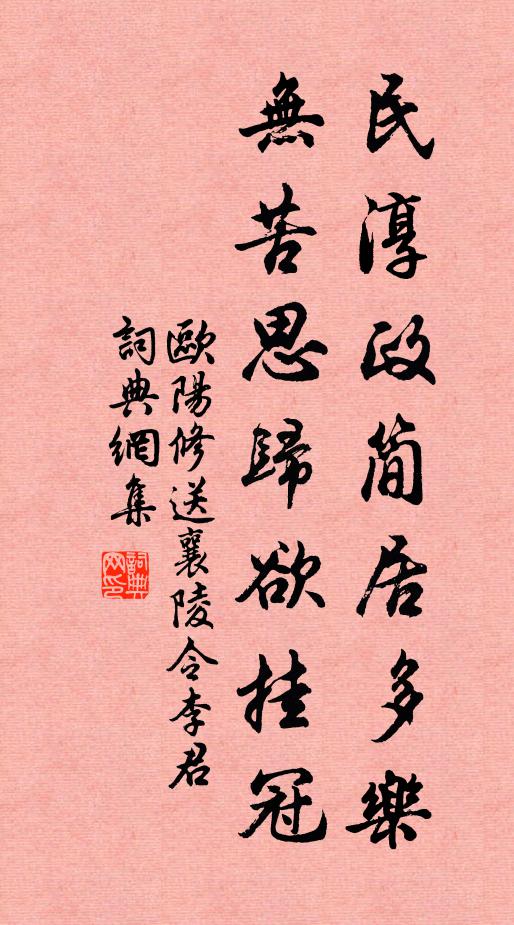 民淳政简居多樂
無苦思歸欲挂冠
歐陽修送襄陵令李君
詞典網集
詞典
网印